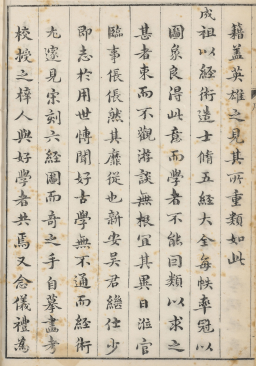 籍盖英雄之見其所重類如此
成祖以經術造士脩五經大全每帙率冠以
圖象良得此意而學者不能因類以求之
甚者束而不觀游談無根宜其異日蒞官
臨事倀倀然其靡從也新安吴君繼仕少
即志於用世慱聞好古學無不通而經術
尤邃見宋刻六經圖而奇之手自摹畫考
校授之梓人與好學者共焉又念儀禮為